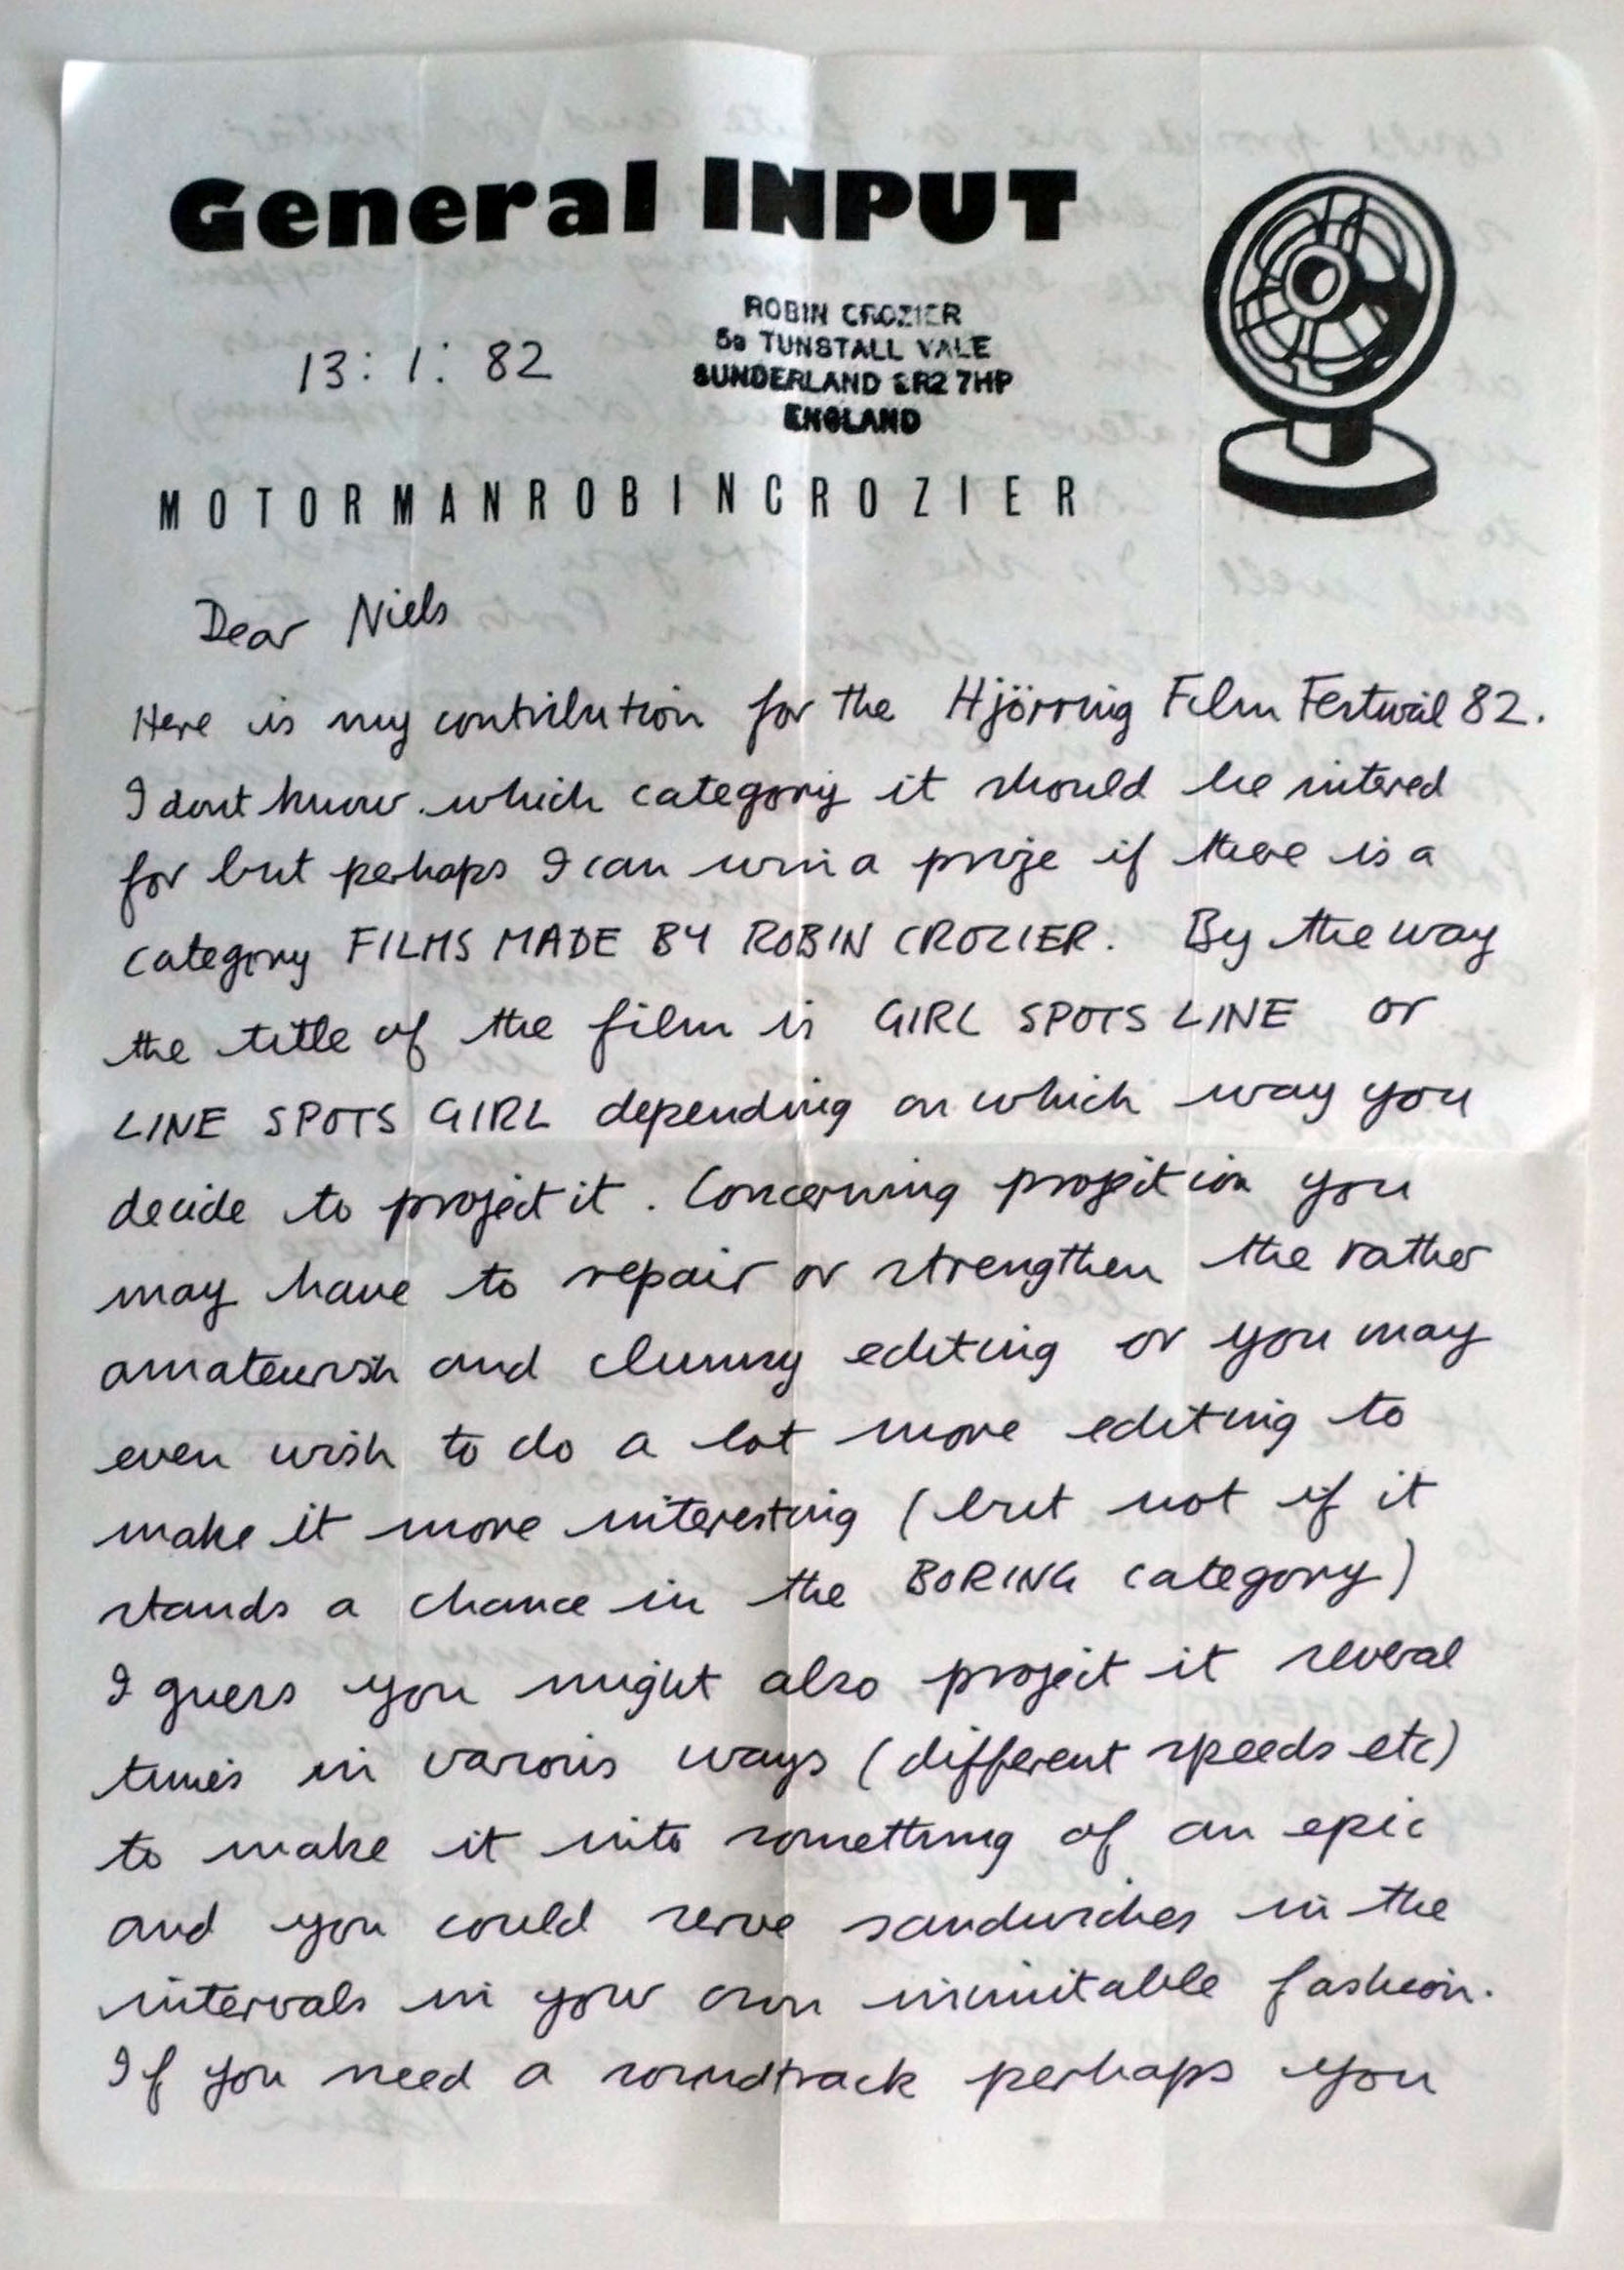 General INPUT
ROBIN CROZIER
5a TUNSTALL VALE
SUNDERLAND SR2 7HP
ENGLAND
13: 1: 82
MOTORMANROBINCROZIER
Dear Niels
Here is my contribution for the Hjörring Film Festival 82.
I dont know which category it should be entered
for but perhaps I can win a prize if there is a
category FILMS MADE BY ROBIN CROZIER. By the way
the title of the film is GIRL SPOTS LINE or
LINE SPOTS GIRL depending on which way you
decide to project it. Concerning projection you
may have to repair or strengthen the rather
amateurish and clumsy editing or you may
even wish to do a lot more editing to
make it more interesting (but not if it
stands a chance in the BORING category)
I guess you might also project it several
times in various ways (different speeds etc)
to make it into something of an epic
and you could serve sandwiches in the
intervals in your own inimitable fashion.
If you need a soundtrack perhaps you